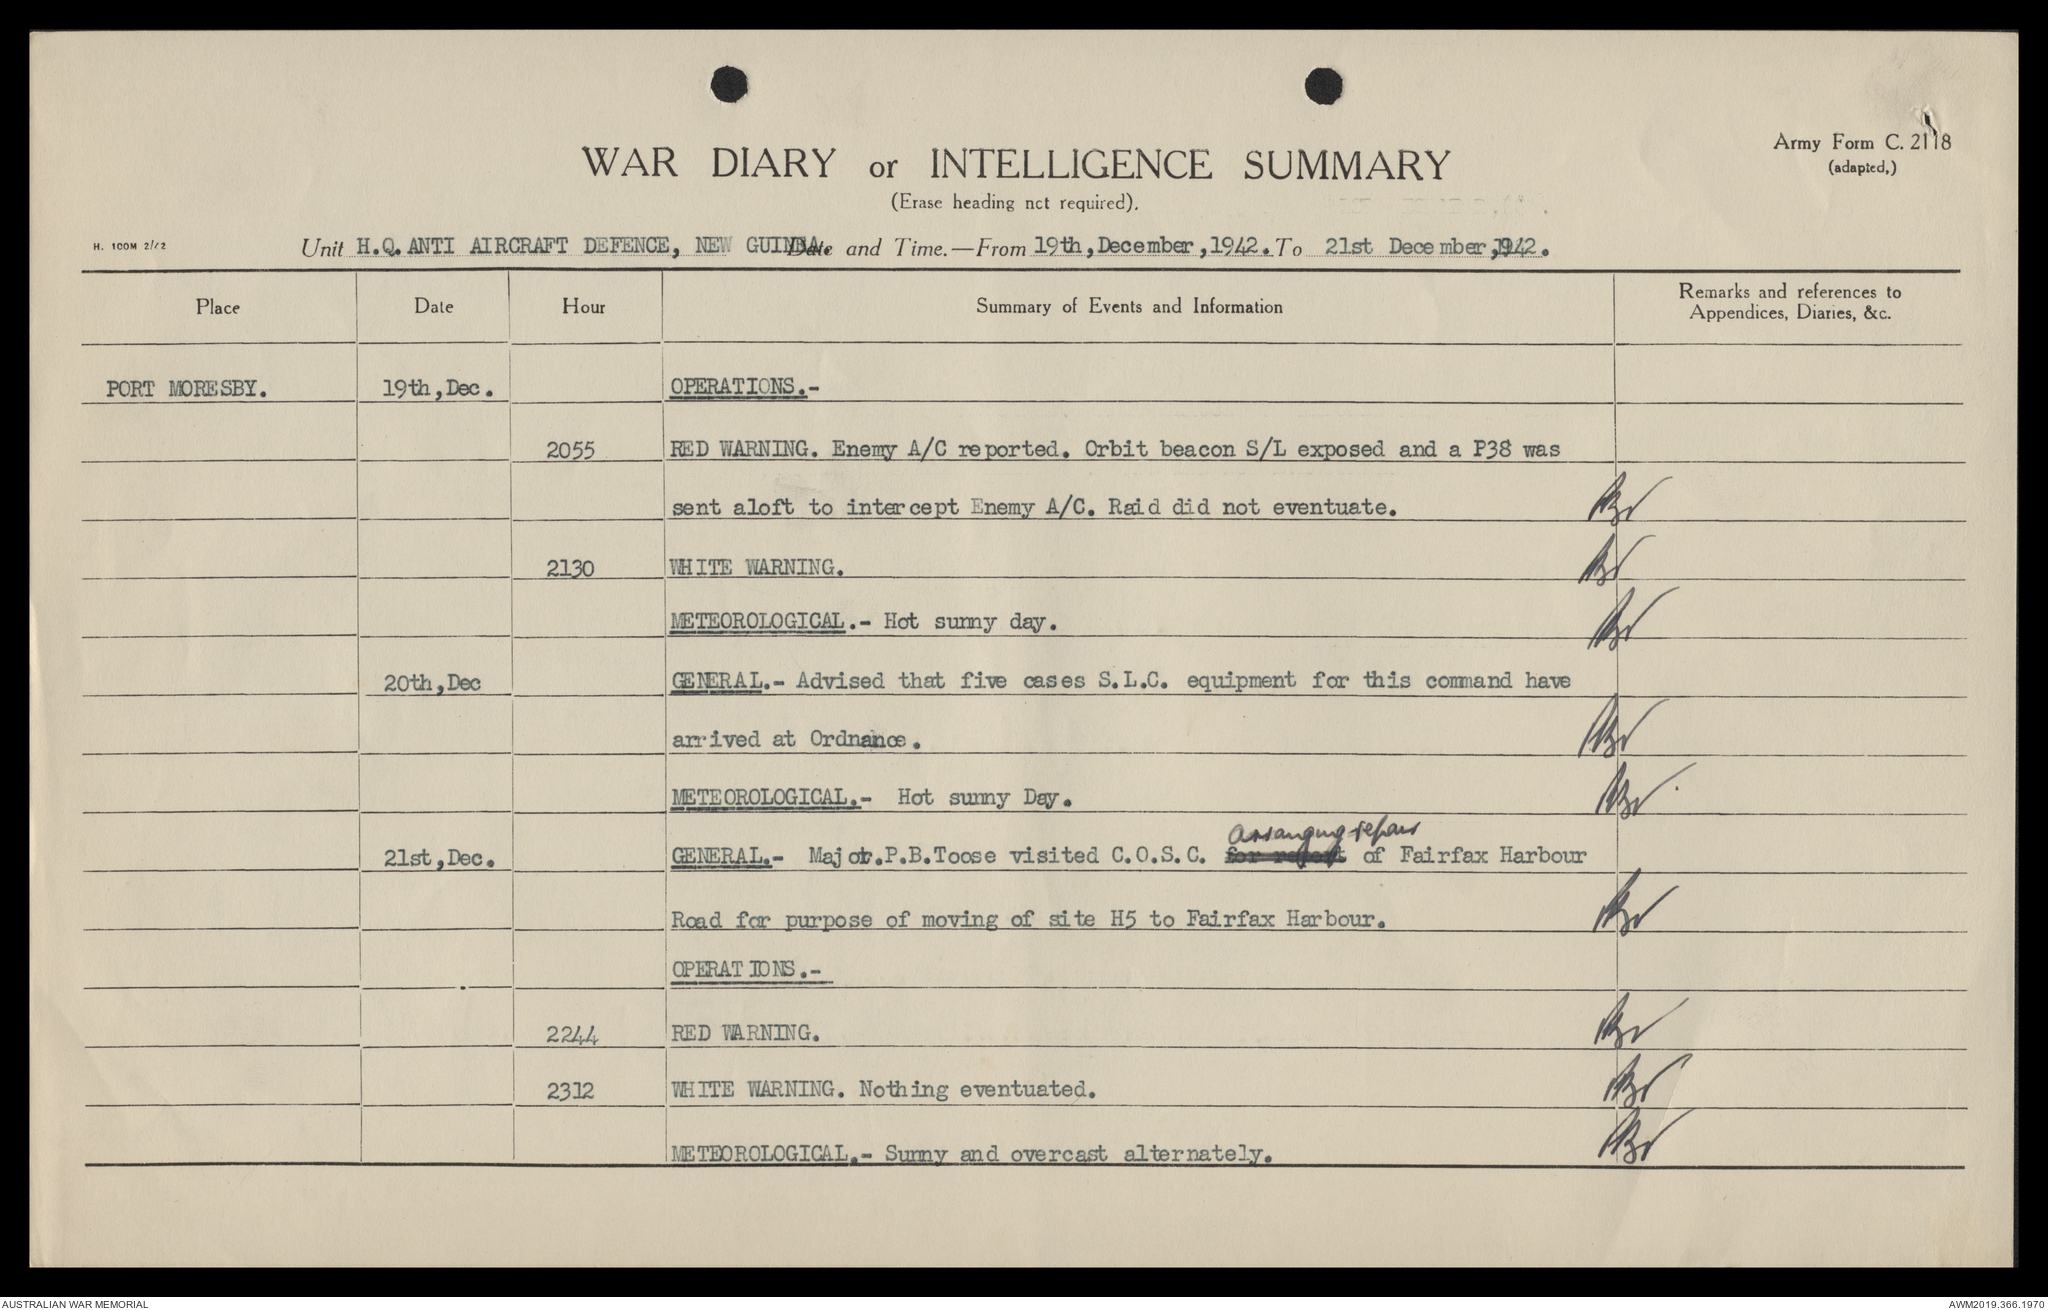 Army Form C. 2118
(adapted,)
WAR DIARY or INTELLIGENCE SUMMARY
(Erase heading not required).
H. 100M 2/42
Unit H.Q. ANTI AIRCRAFT DEFENCE, NEW GUINEA. Date and Time.—From 19th, December, 1942. To 21st December, 1942.
Place Date Hour Summary of Events and Information Remarks and references to
Appendices, Diaries, &c.
PORT MORESBY. 19th, Dec. OPERATIONS.-
2055 RED WARNING. Enemy A/C reported. Orbit beacon S/L exposed and a P38 was
sent aloft to intercept Enemy A/C. Raid did not eventuate.
2130 WHITE WARNING.
METEOROLOGICAL.- Hot sunny day.
20th, Dec GENERAL.- Advised that five cases S.L.C. equipment for this command have
arrived at Ordnance.
METEOROLOGICAL.- Hot sunny Day.
arranging repair
21st, Dec. GENERAL.- Major. P.B. Toose visited C.O.S.C. for report of Fairfax Harbour
Road for purpose of moving of site H5 to Fairfax Harbour.
OPERATIONS.-
2244 RED WARNING.
2312 WHITE WARNING. Nothing eventuated.
METEOROLOGICAL.- Sunny and overcast alternately.
AUSTRALIAN WAR MEMORIAL AWM2019.366.1970